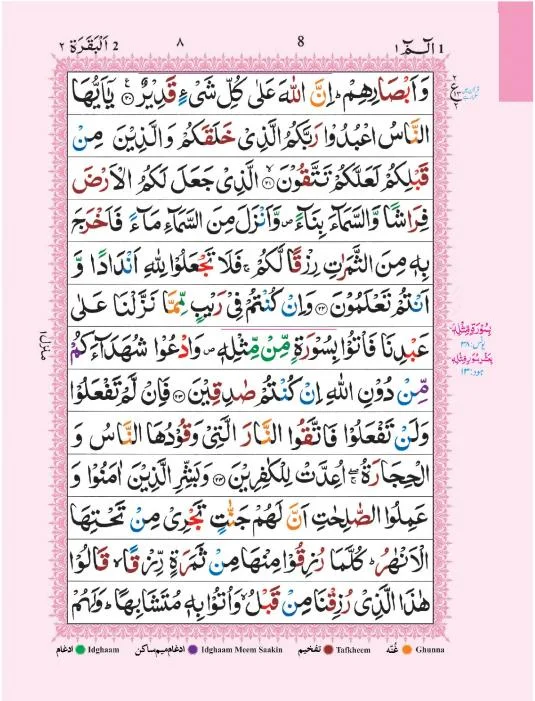 2 اَلْبَقَرَة ٢
٨
8
الٓمّٓ ١ 1
وَاَبْصَارِهِمْ ؕ اِنَّ اللّٰهَ عَلٰى كُلِّ شَیْءٍ قَدِیْرٌ ۟ ۲۰ یٰۤاَیُّهَا
النَّاسُ اعْبُدُوْا رَبَّكُمُ الَّذِیْ خَلَقَكُمْ وَالَّذِیْنَ مِنْ
قَبْلِكُمْ لَعَلَّكُمْ تَتَّقُوْنَ ۙ ۲۱ الَّذِیْ جَعَلَ لَكُمُ الْاَرْضَ
فِرَاشًا وَّالسَّمَآءَ بِنَآءً ۪ وَّاَنْزَلَ مِنَ السَّمَآءِ مَآءً فَاَخْرَجَ
بِهٖ مِنَ الثَّمَرٰتِ رِزْقًا لَّكُمْ ۚ فَلَا تَجْعَلُوْا لِلّٰهِ اَنْدَادًا وَّ
اَنْتُمْ تَعْلَمُوْنَ ۲۲ وَاِنْ كُنْتُمْ فِیْ رَیْبٍ مِّمَّا نَزَّلْنَا عَلٰى
عَبْدِنَا فَاْتُوْا بِسُوْرَةٍ مِّنْ مِّثْلِهٖ ۪ وَادْعُوْا شُهَدَآءَكُمْ
مِّنْ دُوْنِ اللّٰهِ اِنْ كُنْتُمْ صٰدِقِیْنَ ۲۳ فَاِنْ لَّمْ تَفْعَلُوْا
وَلَنْ تَفْعَلُوْا فَاتَّقُوا النَّارَ الَّتِیْ وَقُوْدُهَا النَّاسُ وَ
الْحِجَارَةُ ۖۚ اُعِدَّتْ لِلْكٰفِرِیْنَ ۲۴ وَبَشِّرِ الَّذِیْنَ اٰمَنُوْا وَ
عَمِلُوا الصّٰلِحٰتِ اَنَّ لَهُمْ جَنّٰتٍ تَجْرِیْ مِنْ تَحْتِهَا
الْاَنْهٰرُ ؕ كُلَّمَا رُزِقُوْا مِنْهَا مِنْ ثَمَرَةٍ رِّزْقًا ۙ قَالُوْا
هٰذَا الَّذِیْ رُزِقْنَا مِنْ قَبْلُ ۙ وَاُتُوْا بِهٖ مُتَشَابِهًا ؕ وَلَهُمْ
منزل ١
بِسُوْرَةٍ مِّثْلِهٖ
یونس: ۳۸
بِعَشْرِ سُوَرٍ مِّثْلِهٖ
ہود: ۱۳
ادغام Idghaam
ادغام میم ساکن Idghaam Meem Saakin
تفخیم Tafkheem
غُنّه Ghunna